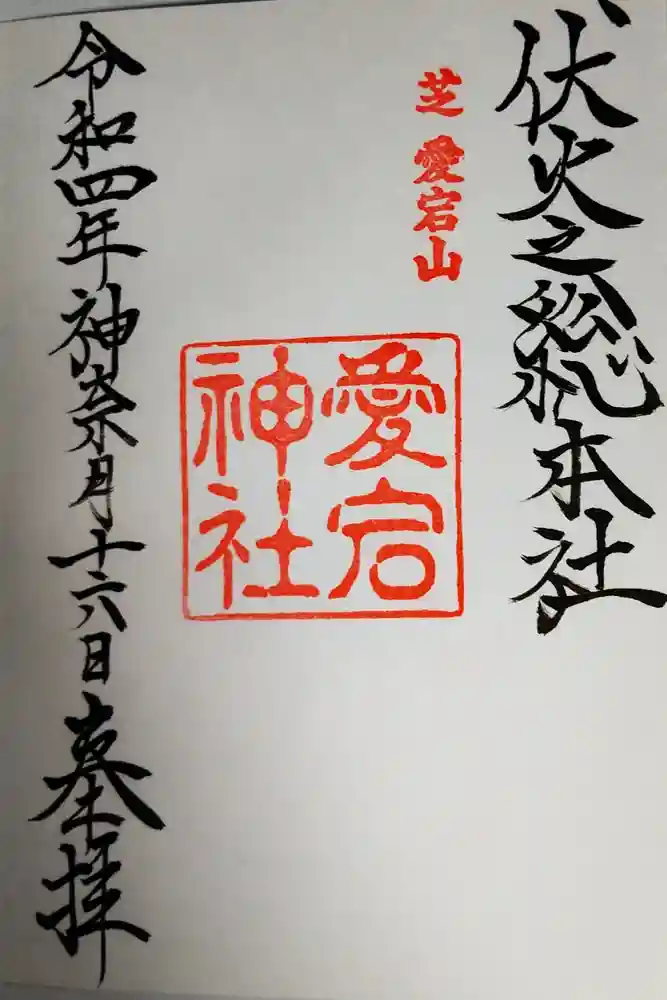 伏火之総本社
芝 愛宕山
愛宕
神社
令和四年神奈月十六日墓拝